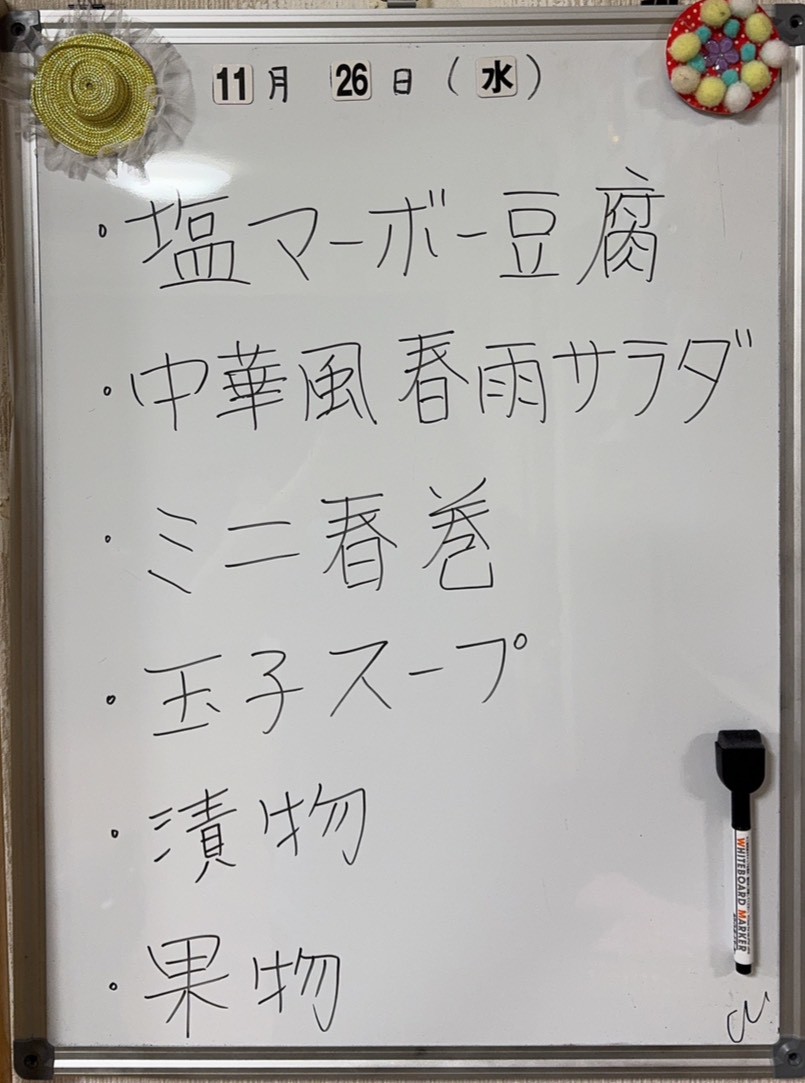 11月 26日(水)
・塩マーボー豆腐
・中華風春雨サラダ
・ミニ春巻
・玉子スープ
・漬物
・果物
WHITEBOARD MARKER